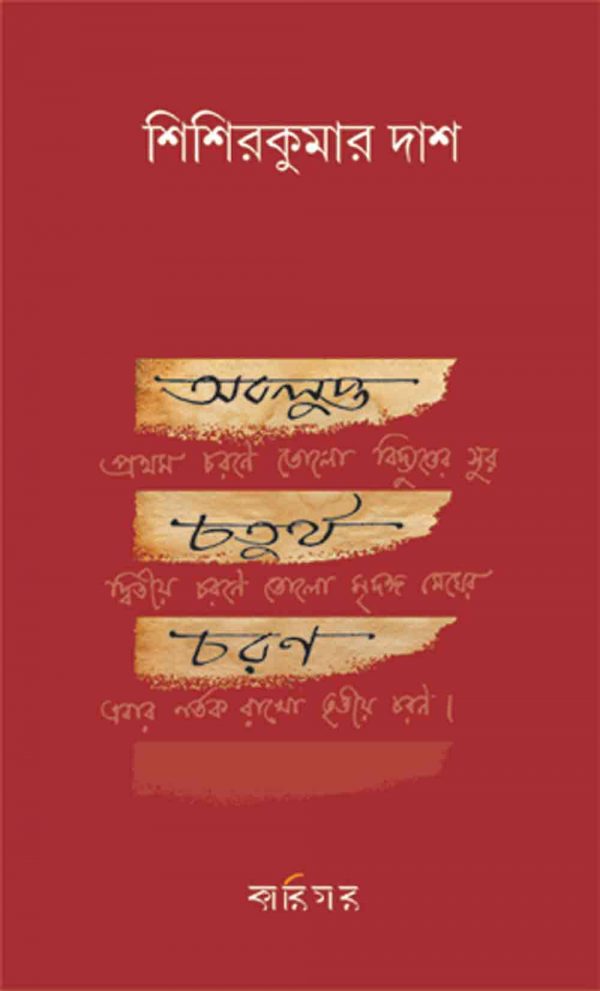 শিশিরকুমার দাশ
অবলুপ্ত
প্রথম চরণে তোলো বিদ্যুতের সুর
চতুর্থ
দ্বিতীয়ে চরণে তোলো মৃদঙ্গ মেঘের
চরণ
এবার নর্তক রাখো তৃতীয়ে চরণ।
কারিগর